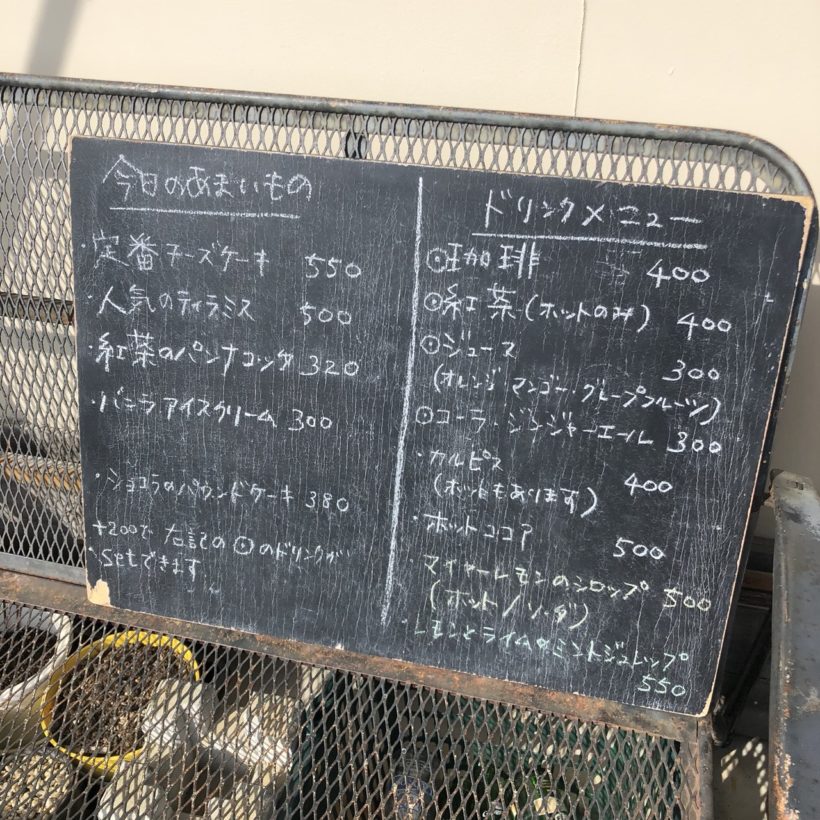 今日のあまいもの
・定番チーズケーキ 550
・人気のティラミス 500
・紅茶のパンナコッタ 320
・バニラアイスクリーム 300
・ショコラのパウンドケーキ 380
+200で 右記の⊙のドリンクが
setできます
ドリンクメニュー
⊙珈琲 400
⊙紅茶(ホットのみ) 400
⊙ジュース 300
(オレンジ・マンゴー・グレープフルーツ)
⊙コーラ・ジンジャーエール 300
・カルピス 400
(ホットもあります)
・ホットココア 500
・マイヤーレモンのシロップ 500
(ホット/ソーダ)
・レモンとライムのミントジュレップ
550